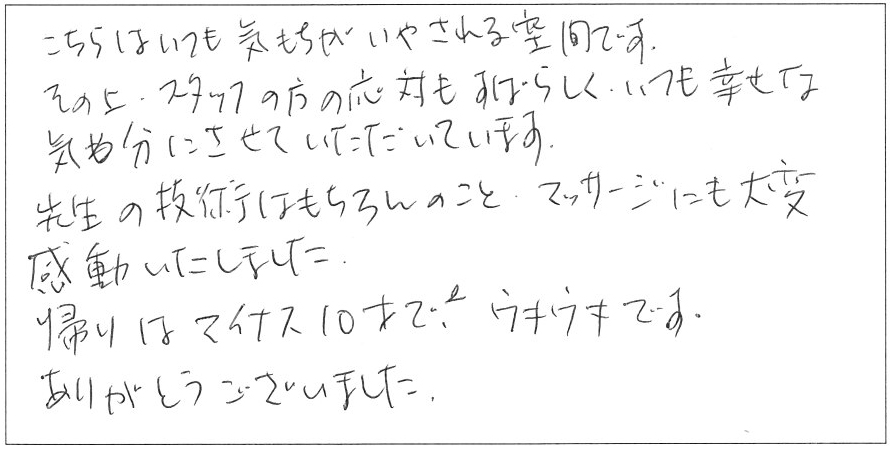 こちらはいつも気もちがいやされる空間です.
その上.スタッフの方の応対もすばらしく.いつも幸せな
気分にさせていただいています.
先生の技術はもちろんのこと.マッサージにも大変
感動いたしました.
帰りはマイナス10才で! ウキウキです.
ありがとうございました.